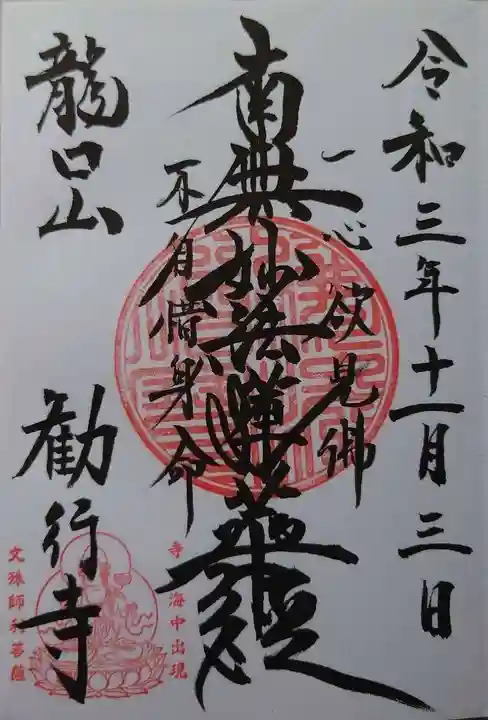 令和三年十一月三日
一心欲見佛
南無妙法蓮華経
不自惜身命
龍口山
勧行寺
海中出現
文殊師利菩薩